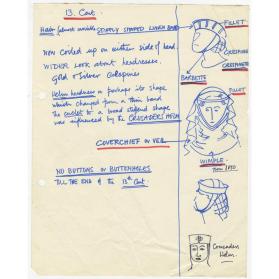 13. Cent.
Hair (almost invisible)
Now coiled up on either side of head.
WIDER Look about headdresses.
Gold & Silver Calopines
Helm headdress
which changed from a thin band
The circlet to a broad stiffened shape
was influenced by the CRUSADERS HELM
COVERCHIEF or VEIL
NO BUTTONS or BUTTONHOLES
TILL THE END of the 13th Cent.
FILLET
CRESPINE
CRESPINETTE
BARBETTE
FILLET
WIMPLE
from 1190
Crusaders
Helm.